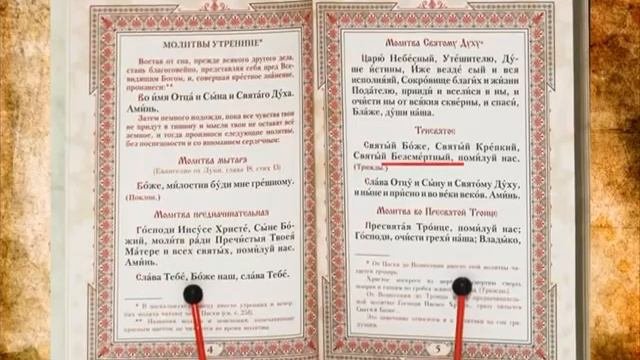 МОЛИТВЫ УТРЕННИЕ*
Востав от сна, прежде всякого другого дела,
стань благоговейно, представляя себя пред Все-
видящим Богом, и, совершая крестное знамение,
произнеси:**
Во и́мя Отца́ и Сы́на и Свята́го Ду́ха.
Ами́нь.
Затем немного подожди, пока все чувства твои
не придут в тишину и мысли твои не оставят всё
земное, и тогда произноси следующие молитвы,
без поспешности и со вниманием сердечным:
Молитва мытаря
(Евангелие от Луки, глава 18, стих 13)
Бо́же, ми́лостив бу́ди мне гре́шному.
(Поклон.)
Молитва предначинательная
Го́споди Иису́се Христе́, Сы́не Бо́-
жий, моли́тв ра́ди Пречи́стыя Твоея́
Ма́тере и всех святы́х, поми́луй нас.
Ами́нь.
Сла́ва Тебе́, Бо́же наш, сла́ва Тебе́.
4
Молитва Святому Духу*
Царю́ Небе́сный, Уте́шителю, Ду́-
ше и́стины, И́же везде́ сый и вся
исполня́яй, Сокро́вище благи́х и жи́зни
Пода́телю, прииди́ и всели́ся в ны, и
очи́сти ны от вся́кия скве́рны, и спаси́,
Бла́же, ду́ши на́ша.
Трисвятое
Святы́й Бо́же, Святы́й Кре́пкий,
Святы́й Безсме́ртный, поми́луй нас.
(Трижды.)
Сла́ва Отцу́ и Сы́ну и Свято́му Ду́ху,
и ны́не и при́сно и во ве́ки веко́в. Ами́нь.
Молитва ко Пресвятой Троице
Пресвята́я Тро́ице, поми́луй нас;
Го́споди, очи́сти грехи́ на́ша; Влады́ко,
5